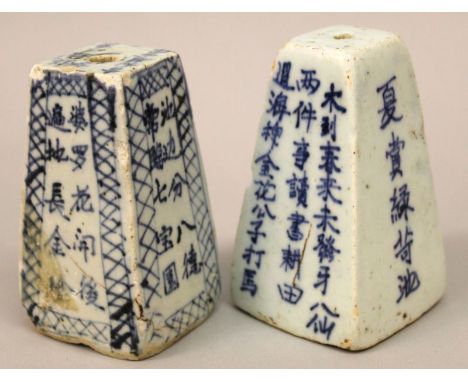 婆罗花開後
遍地長金
池边分八德
臨七宝圓
木到春来未發牙八仙
两件事讀書耕田
退海神金花公子打馬
夏賞緑荷池